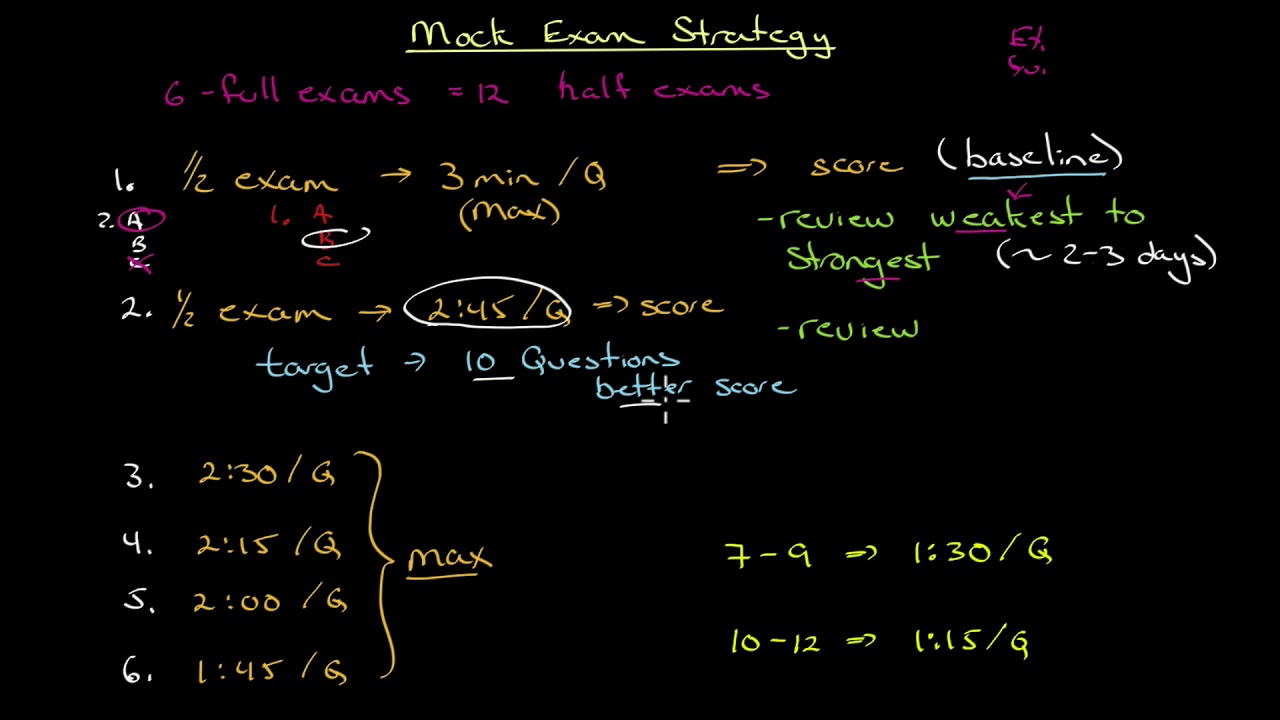 Mock Exam Strategy
Ex.
Su.
6 - full exams = 12 half exams
1. 1/2 exam → 3 min / Q ⇒ score (baseline)
(Max)
- review weakest to
strongest (~ 2-3 days)
2. A
B
C
1. A
B
C
2. 1/2 exam → 2:45 / Q ⇒ score
- review
target → 10 Questions
better score
3. 2:30 / Q
4. 2:15 / Q
5. 2:00 / Q
6. 1:45 / Q
max
7 - 9 ⇒ 1:30 / Q
10 - 12 ⇒ 1:15 / Q